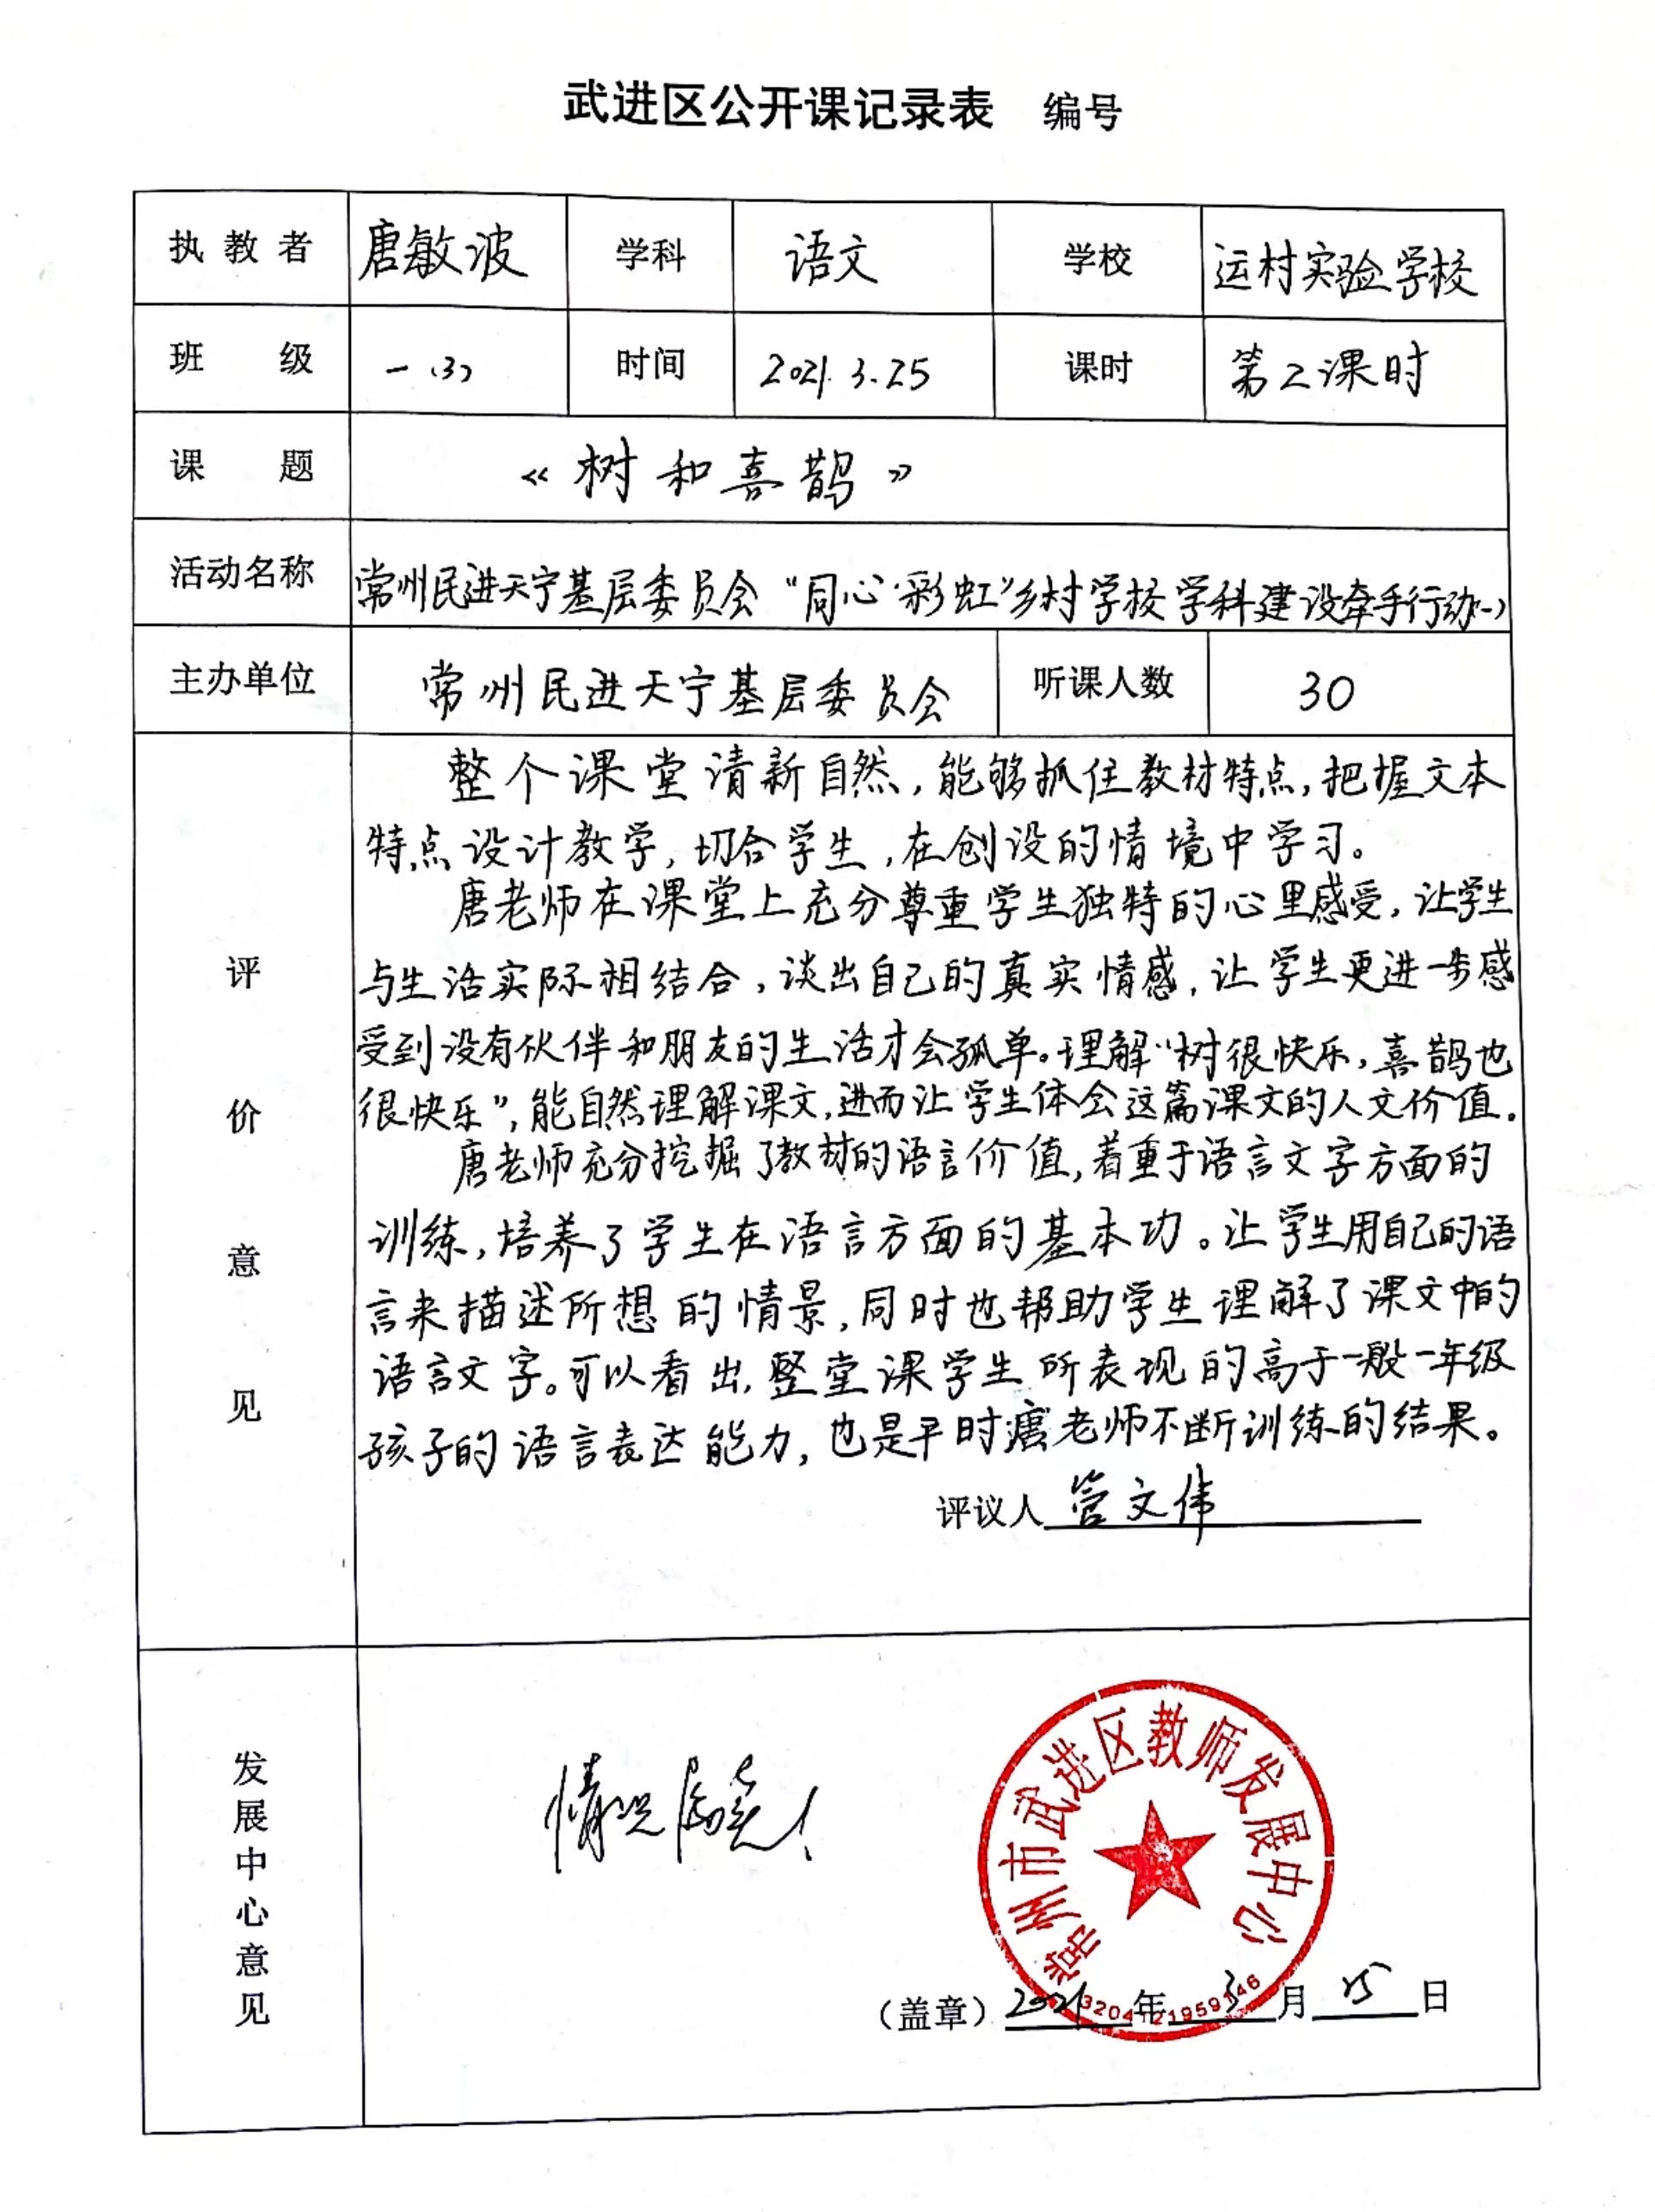 武进区公开课记录表 编号
执教者 唐敏波 学科 语文 学校 运村实验学校
班级 一(3) 时间 2021.3.25 课时 第2课时
课题 《树和喜鹊》
活动名称 常州民进天宁基层委员会“同心·彩虹”乡村学校学科建设牵手行动(一)
主办单位 常州民进天宁基层委员会 听课人数 30
评价意见
整个课堂清新自然,能够抓住教材特点,把握文本
特点设计教学,切合学生,在创设的情境中学习。
唐老师在课堂上充分尊重学生独特的心里感受,让学生
与生活实际相结合,谈出自己的真实情感,让学生更进一步感
受到没有伙伴和朋友的生活才会孤单。理解“树很快乐,喜鹊也
很快乐”,能自然理解课文,进而让学生体会这篇课文的人文价值.
唐老师充分挖掘了教材的语言价值,着重于语言文字方面的
训练,培养了学生在语言方面的基本功。让学生用自己的语
言来描述所想的情景,同时也帮助学生理解了课文中的
语言文字。可以看出,整堂课学生所表现的高于一般一年级
孩子的语言表达能力,也是平时唐老师不断训练的结果。
评议人 管文伟
发展中心意见
情况属实!
常州市武进区教师发展中心
3204121959146
(盖章)2021年3月25日